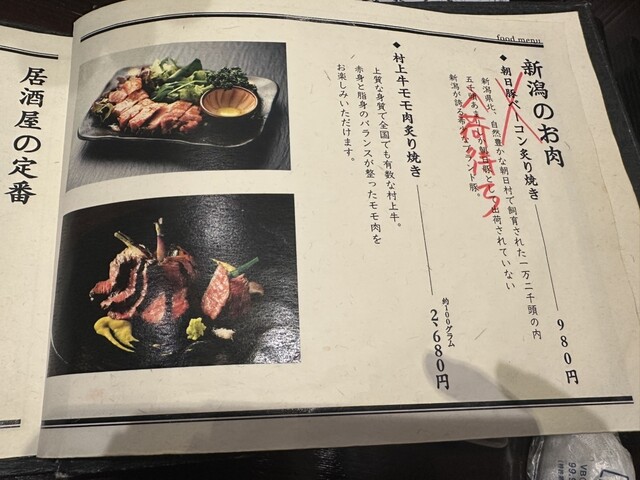 food menu
新潟のお肉
◆朝日豚ベーコン炙り焼き 980円
新潟県北、自然豊かな朝日村で飼育された一万二千頭の内
入荷待ち
◆村上牛モモ肉炙り焼き 約100グラム 2,680円
上質な身質で全国でも有数な村上牛。
赤身と脂身のバランスが整ったモモ肉を
お楽しみいただけます。
居酒屋の定番